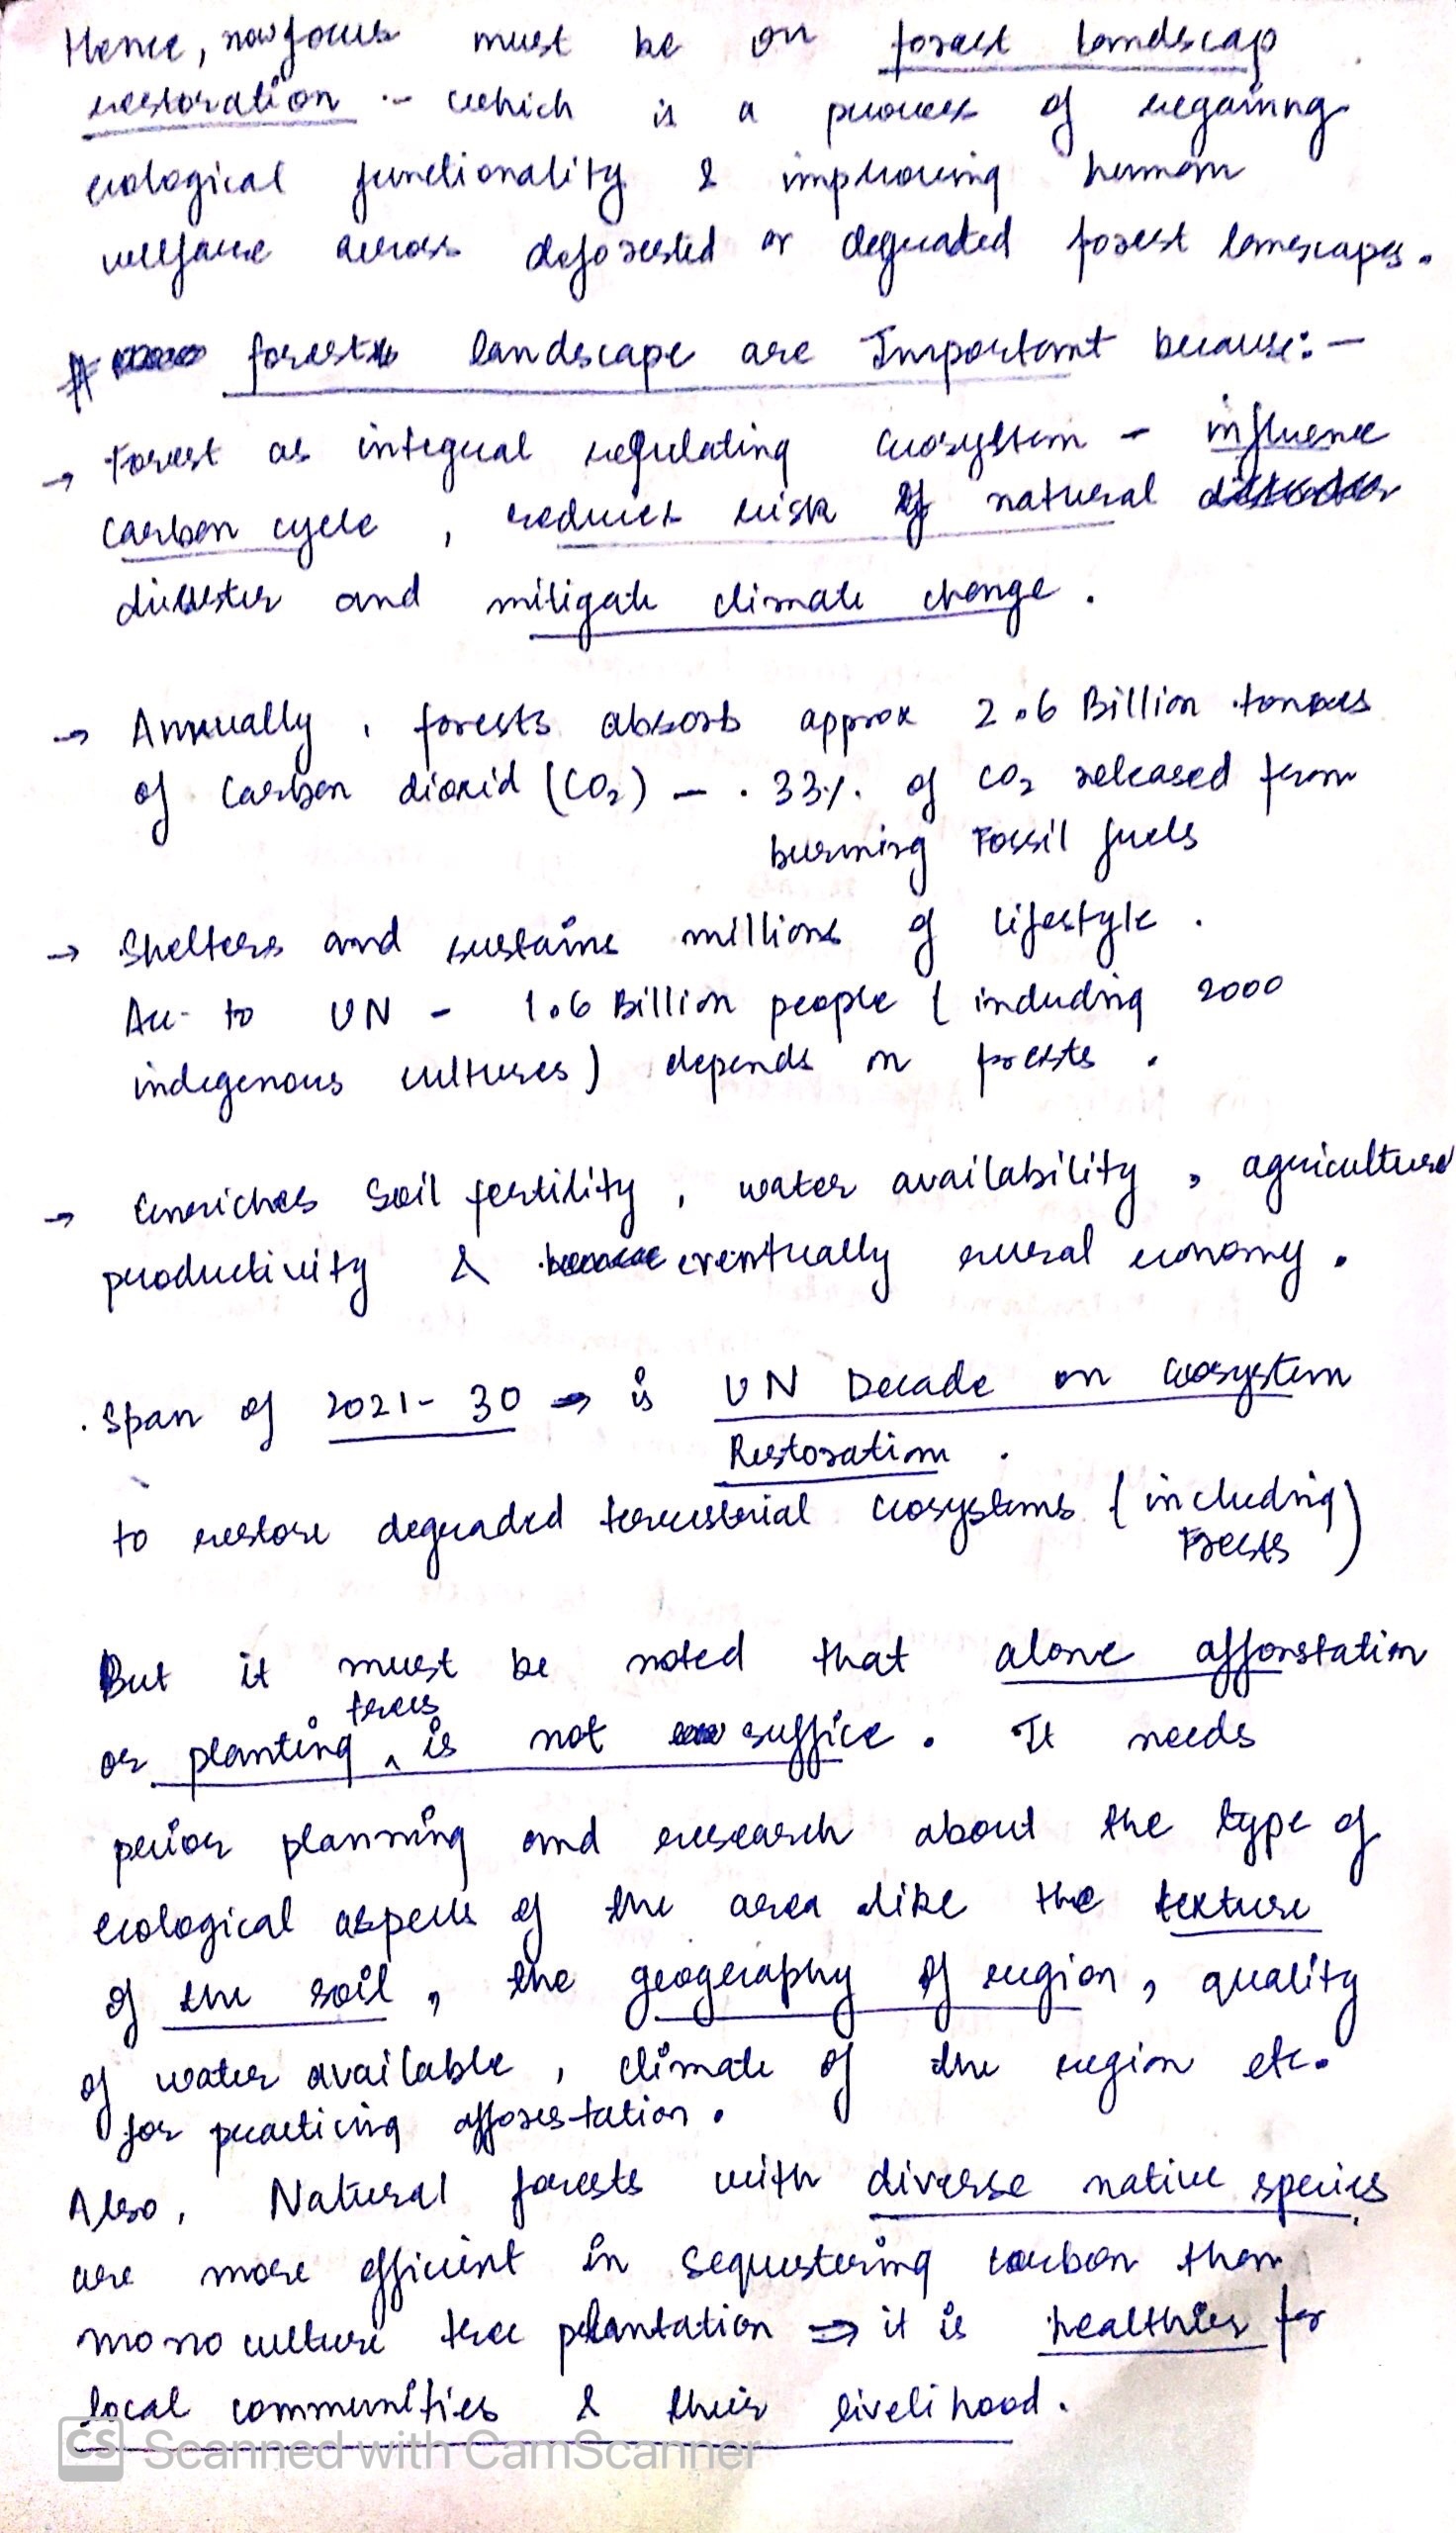 Hence, now focus must be on forest landscap
restoration :- which is a process of regaining
ecological functionality & improving human
welfare across deforested or degraded forest lanscapes.
# forests landscape are Important because:-
→ Forest as integral regulating ecosystem - influence
carbon cycle, reduces risk of natural
disaster and mitigate climate change.
→ Annually, forests absorb approx 2.6 Billion tonnes
of Carbon dioxid (CO₂) - 33% of CO₂ released from
burning Fossil fuels
→ Shelters and sustains millions of lifestyle.
Acc. to UN - 1.6 Billion people (including 2000
indegenous cultures) depends on forests.
→ Enriches Soil fertility, water availability, agriculture
productivity & eventually rural economy.
. Span of 2021-30 → is UN Decade on Ecosystem
Restoration.
to restore degraded terrestrial ecosystems (including
Forests)
But it must be noted that alone afforstation
trees
or planting ^ is not suffice. It needs
prior planning and research about the type of
ecological aspects of the area like the texture
of the soil, the geography of region, quality
of water available, climate of the region etc.
for practicing afforestation.
Also, Natural forests with diverse native species,
are more efficient in sequestering carbon than
mono culture tree plantation ⇒ it is healthier for
local communities & their livelihood.
CS Scanned with CamScanner